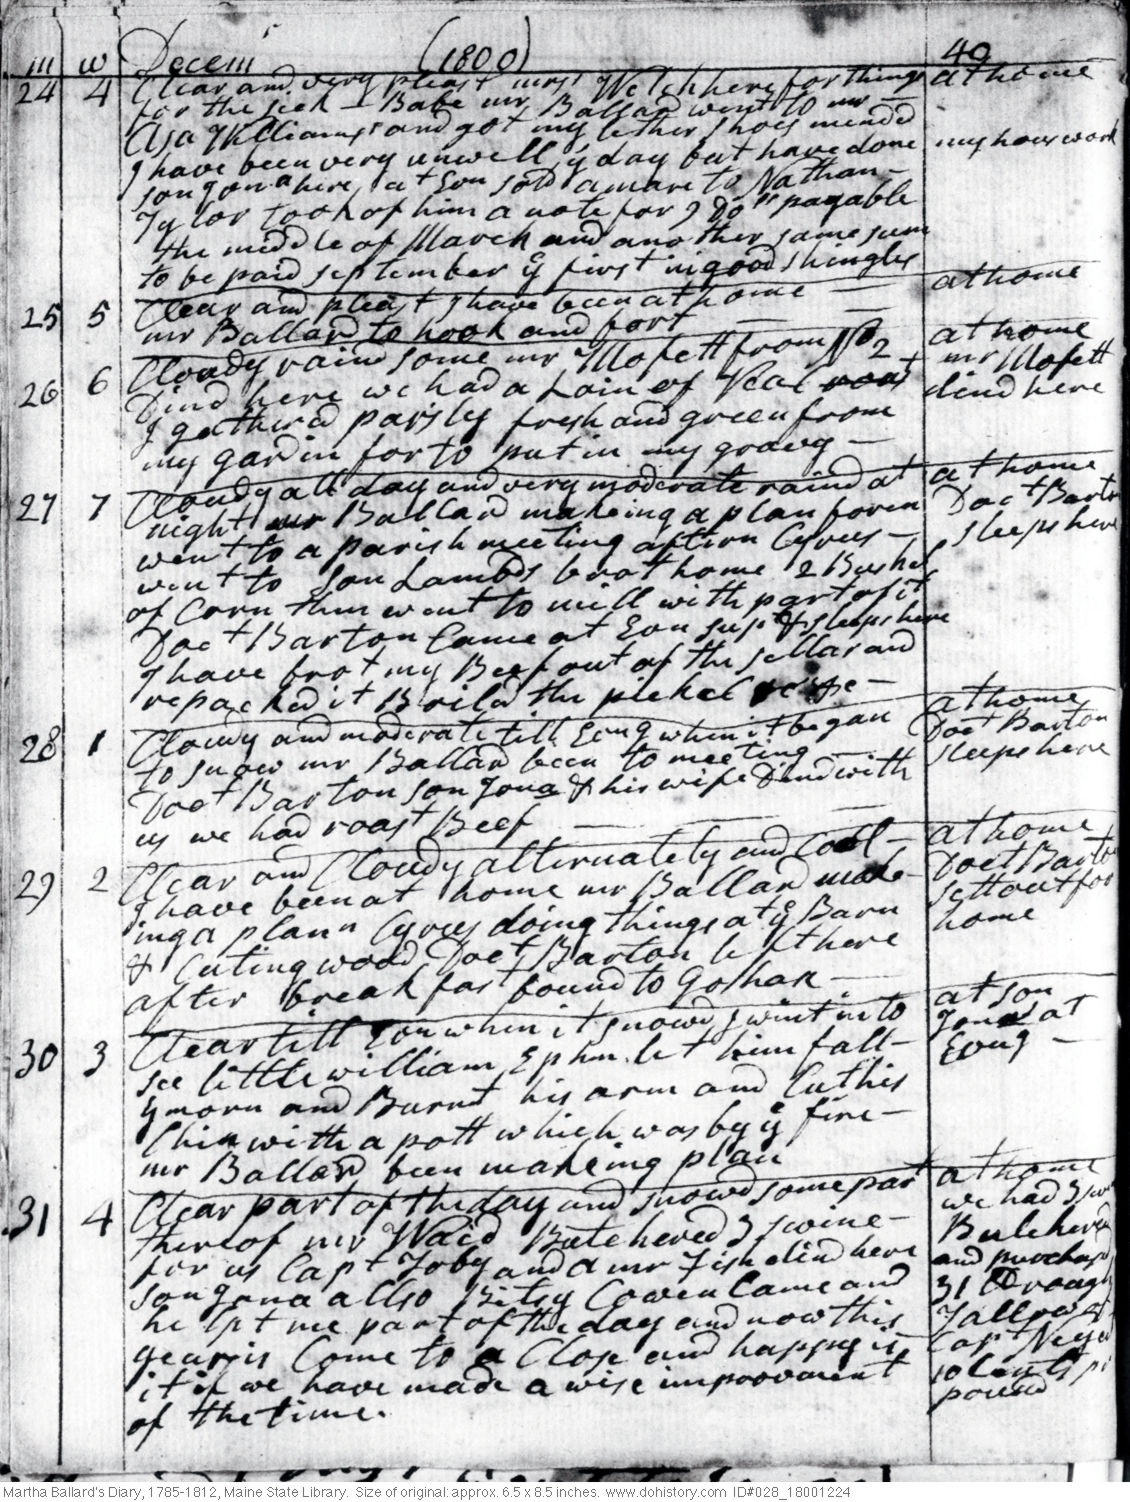 m w Decem 1800 49
24 4 Clear and very pleast mrs Welch here for things at home
for the sick Babe mr Ballard went to mr
Asa Williams and got my lether shoes mended
I have been very unwell ÿ day but have done my hous work
son Jona here at Evn sold a mare to Nathan
Tylor took of him a note for 9 Do payable
the middle of March and another same sum
to be paid september ÿ first in good shingles
25 5 Clear and pleast I have been at home at home
mr Ballard to hook and fort
26 6 Cloudy raind some mr Mofett from No 2 at home
Dind here we had a Loin of Veal roast mr Mofett
I gatherd parsley fresh and green from dind here
my gardin for to put in my gravy
27 7 Cloudy all day and very moderate raind at at home
night mr Ballard makeing a plan foren Doct Barton
went to a parish meeting aftern Cyrus sleeps here
went to son Lambds brot home 2 Bushel
of Corn then went to mill with part of it
Doct Barton Came at Evn supt & sleeps here
I have brot my Beef out of the sellar and
repacked it Boild the pickel
28 1 Cloudy and moderate till Evng when it began at home
to snow mr Ballard been to meeting Doct Barton
Doct Barton son Jona & his wife Dind with sleeps here
us we had roast Beef
29 2 Clear and Cloudy alternately and Cool at home
I have been at home mr Ballard make Doct Barton
ing a plann Cyrus doing things at ÿ Barn sett out for
& Cuting wood Doct Barton left here home
after break fast bound to Goshan
30 3 Clear till Evn when it snowd I wint in to at son
see little william Ephm let him fall Jonas at
ÿ morn and Burnt his arm and Cut his Evng
Chin with a pott which was by ÿ fire
mr Ballard been makeing plan
31 4 Clear part of the day and snowd some part at home
thereof mr Waid Butchered 3 swine we had 3 swine
for us Capt Toby and a mr Fish dind here Butchered
son Jona allso Betsy Cowen Came and and purchasd
helpt me part of the day and now this 31 of rough
year is Come to a Close and happy is Tallow of
it if we have made a wise improovment Capt
of the time. 10 Cents pr
pound
Martha Ballard's Diary, 1785-1812, Maine State Library. Size of original: approx. 6.5 x 8.5 inches. www.dohistory.com ID#028_18001224